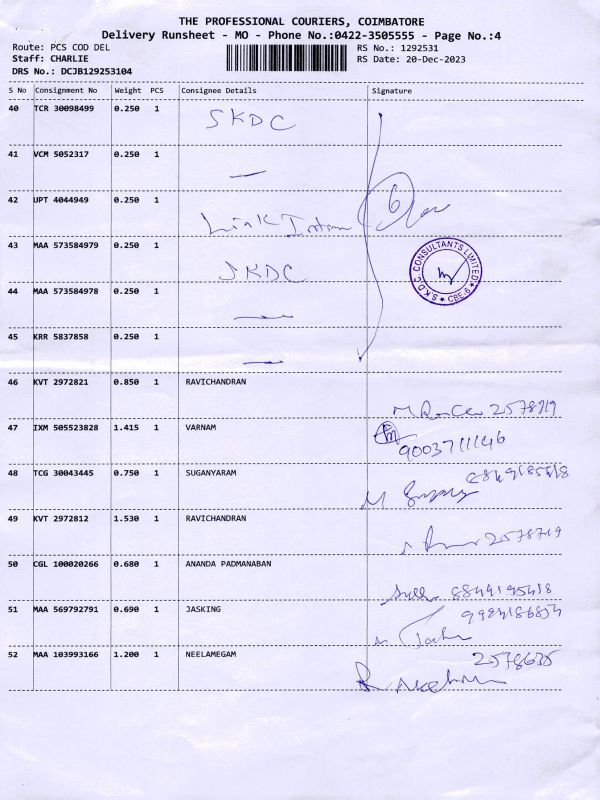 THE PROFESSIONAL COURIERS, COIMBATORE
Delivery Runsheet - MO - Phone No.:0422-3505555 - Page No.:4
Route: PCS COD DEL
Staff: CHARLIE
DRS No.: DCJB129253104
RS No.: 1292531
RS Date: 20-Dec-2023
S No Consignment No Weight PCS Consignee Details Signature
40 TCR 30098499 0.250 1 SKDC
41 VCM 5052317 0.250 1
42 UPT 4044949 0.250 1 Link
43 MAA 573584979 0.250 1 SKDC
S.K.D.C. CONSULTANTS LIMITED
CBE-6
44 MAA 573584978 0.250 1
45 KRR 5837858 0.250 1
46 KVT 2972821 0.850 1 RAVICHANDRAN
47 IXM 505523828 1.415 1 VARNAM
9003711146
48 TCG 30043445 0.750 1 SUGANYARAM
49 KVT 2972812 1.530 1 RAVICHANDRAN
2578719
50 CGL 100020266 0.680 1 ANANDA PADMANABAN
51 MAA 569792791 0.690 1 JASKING
52 MAA 103993166 1.200 1 NEELAMEGAM